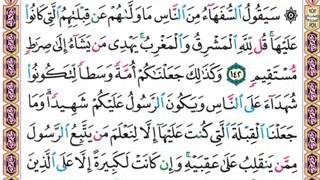 سَيَقُولُ السُّفَهَاءُ مِنَ النَّاسِ مَا وَلَّىٰهُمْ عَن قِبْلَتِهِمُ الَّتِي كَانُوا
عَلَيْهَا ۚ قُل لِّلَّهِ الْمَشْرِقُ وَالْمَغْرِبُ ۚ يَهْدِي مَن يَشَاءُ إِلَىٰ صِرَٰطٍ
مُّسْتَقِيمٍ ١٤٢ وَكَذَٰلِكَ جَعَلْنَٰكُمْ أُمَّةً وَسَطًا لِّتَكُونُوا
شُهَدَاءَ عَلَى النَّاسِ وَيَكُونَ الرَّسُولُ عَلَيْكُمْ شَهِيدًا ۗ وَمَا
جَعَلْنَا الْقِبْلَةَ الَّتِي كُنتَ عَلَيْهَا إِلَّا لِنَعْلَمَ مَن يَتَّبِعُ الرَّسُولَ
مِمَّن يَنقَلِبُ عَلَىٰ عَقِبَيْهِ ۚ وَإِن كَانَتْ لَكَبِيرَةً إِلَّا عَلَى الَّذِينَ